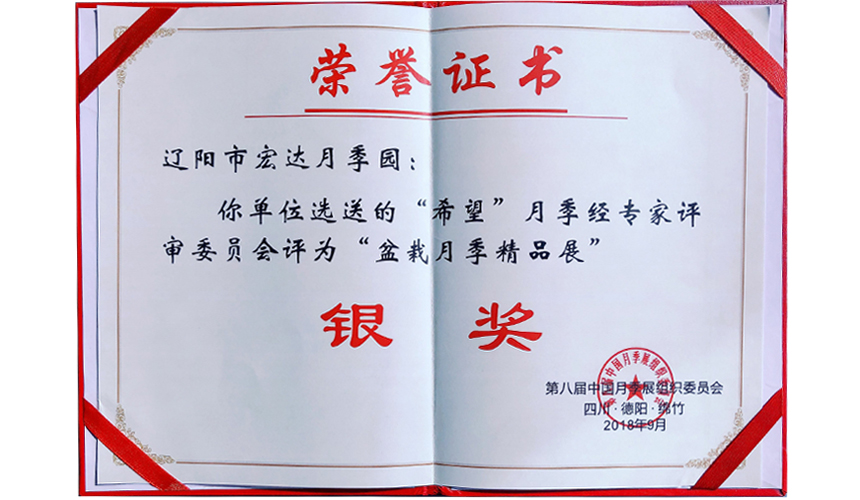 荣誉证书
辽阳市宏达月季园：
你单位选送的“希望”月季经专家评
审委员会评为“盆栽月季精品展”
银奖
第八届中国月季展组织委员会
四川·德阳·绵竹
2018年9月